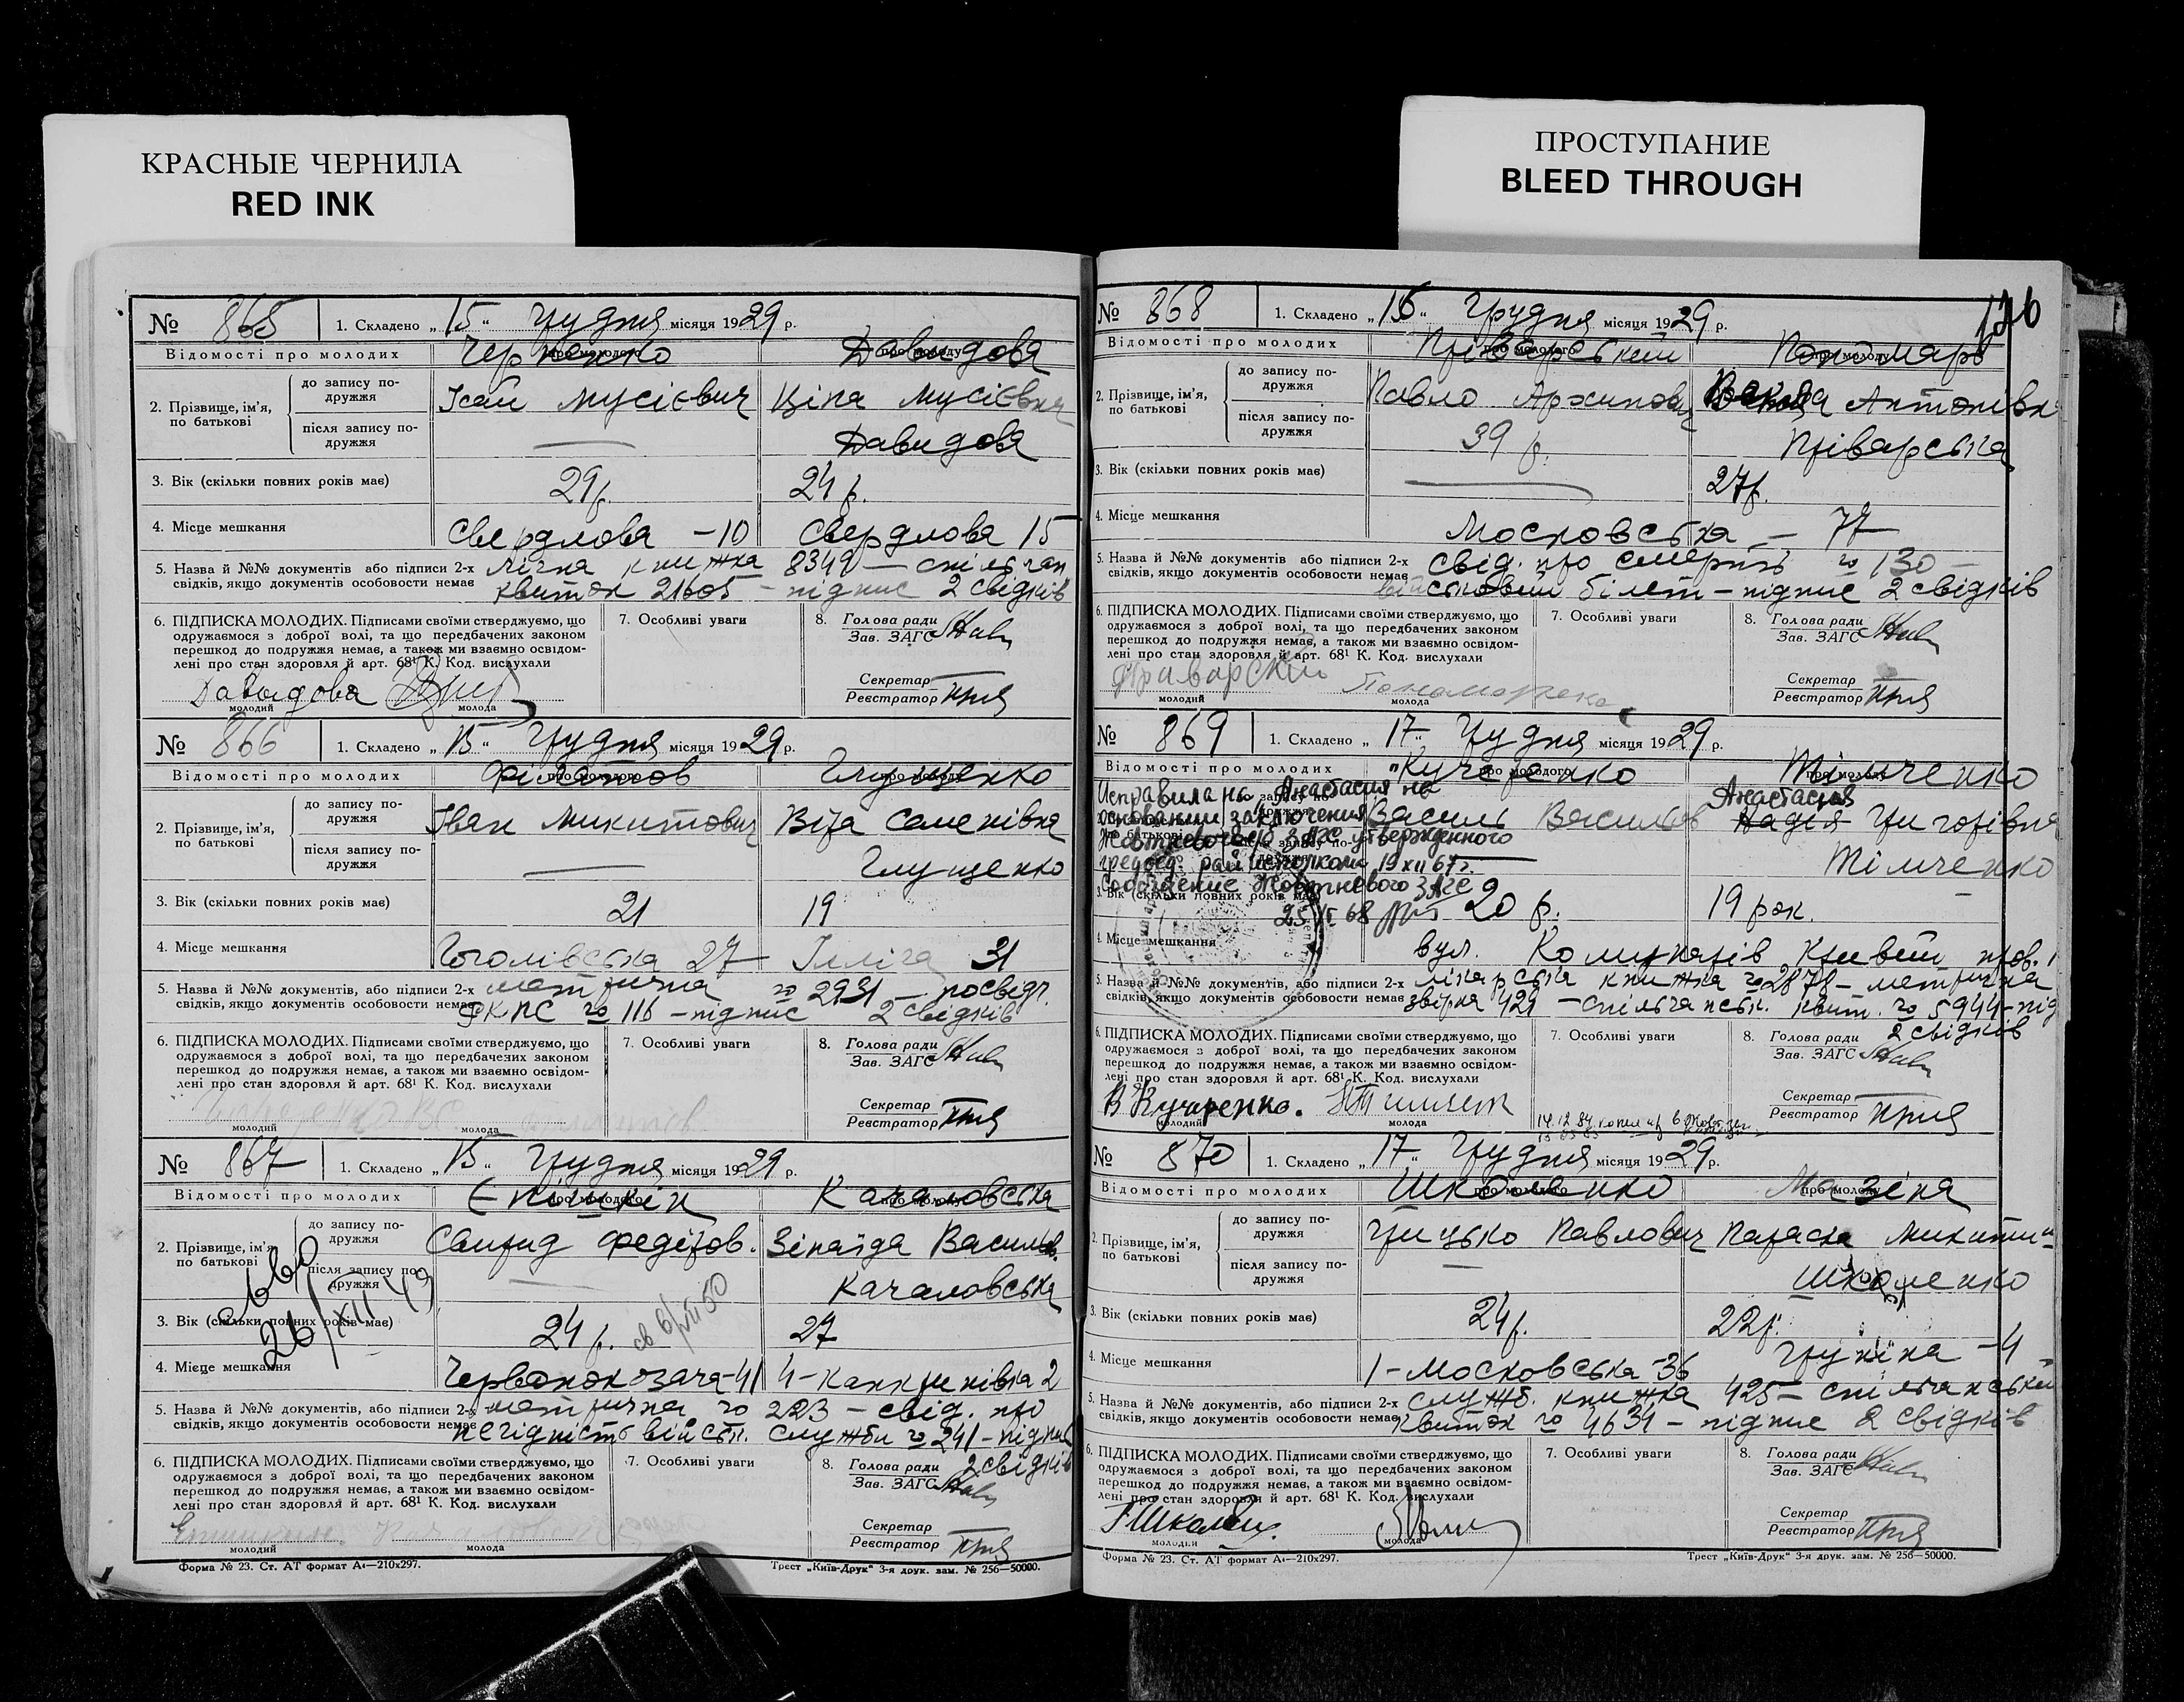 КРАСНЫЕ ЧЕРНИЛА
RED INK
ПРОСТУПАНИЕ
BLEED THROUGH
№ 865 1. Складено „15“ Грудня місяця 1929 р.
Відомості про молодих про молодого про молоду
Давидова
2. Прізвище, ім’я, по батькові
до запису подружжя Ісай Мусієвич Ціпа Мусієвна
після запису подружжя — Давидова
3. Вік (скільки повних років має) 29 р. 24 р.
4. Місце мешкання Свердлова - 10 Свердлова 15
5. Назва й №№ документів або підписи 2-х книжка 8349 —
свідків, якщо документів особовости немає квиток 21605 - підпис 2 свідків
6. ПІДПИСКА МОЛОДИХ. Підписами своїми стверджуємо, що
одружаємося з доброї волі, та що передбачених законом
перешкод до подружжя немає, а також ми взаємно освідом-
лені про стан здоровля й арт. 68¹ К. Код. вислухали
7. Особливі уваги
8. Голова ради
Зав. ЗАГС
Секретар
Реєстратор
Давыдова
молодий молода
№ 866 1. Складено „15“ Грудня місяця 1929 р.
Відомості про молодих про молодого про молоду
Філатов Глущенко
2. Прізвище, ім’я, по батькові
до запису подружжя Іван Микитович Віра Семенівна
після запису подружжя — Глущенко
3. Вік (скільки повних років має) 21 19
4. Місце мешкання Гоголівська 27 Ілліча 31
5. Назва й №№ документів, або підписи 2-х метрична № 2931 — посвідч.
свідків, якщо документів особовости немає № 116 - підпис 2 свідків
6. ПІДПИСКА МОЛОДИХ. Підписами своїми стверджуємо, що
одружаємося з доброї волі, та що передбачених законом
перешкод до подружжя немає, а також ми взаємно освідом-
лені про стан здоровля й арт. 68¹ К. Код. вислухали
7. Особливі уваги
8. Голова ради
Зав. ЗАГС
Секретар
Реєстратор
молодий молода
№ 867 1. Складено „15“ Грудня місяця 1929 р.
Відомості про молодих про молодого про молоду
Єпішкін Качаловська
2. Прізвище, ім’я, по батькові
до запису подружжя Свирид Федоров. Зінаїда Васильев.
після запису подружжя — Качаловська
26/XII 49
3. Вік (скільки повних років має) 24 р. 27
4. Місце мешкання Червонокозача-41 2
5. Назва й №№ документів, або підписи 2-х метрична № 223 — свід. про
свідків, якщо документів особовости немає негідність військ. служби № 241 - підпис
2 свідків
6. ПІДПИСКА МОЛОДИХ. Підписами своїми стверджуємо, що
одружаємося з доброї волі, та що передбачених законом
перешкод до подружжя немає, а також ми взаємно освідом-
лені про стан здоровля й арт. 68¹ К. Код. вислухали
7. Особливі уваги
8. Голова ради
Зав. ЗАГС
Секретар
Реєстратор
молодий молода
Форма № 23. Ст. АТ формат А4—210x297. Трест „Київ-Друк“ 3-я друк. зам. № 256—50000.
№ 868 1. Складено „15“ Грудня місяця 1929 р.
Відомості про молодих про молодого про молоду
Пономарь
2. Прізвище, ім’я, по батькові
до запису подружжя Павло Архипович Антонівн
після запису подружжя 39 р. Пріварська
3. Вік (скільки повних років має) — 27 р.
4. Місце мешкання Московська — 77
5. Назва й №№ документів або підписи 2-х свід. про смерть № 130 —
свідків, якщо документів особовости немає військовий білет - підпис 2 свідків
6. ПІДПИСКА МОЛОДИХ. Підписами своїми стверджуємо, що
одружаємося з доброї волі, та що передбачених законом
перешкод до подружжя немає, а також ми взаємно освідом-
лені про стан здоровля й арт. 68¹ К. Код. вислухали
7. Особливі уваги
8. Голова ради
Зав. ЗАГС
Секретар
Реєстратор
молодий молода
№ 869 1. Складено „17“ Грудня місяця 1929 р.
Відомості про молодих про молодого про молоду
Кучеренко Тімченко
Исправила на Анастасия на
основании заключения
Жовтневого ЗАГС утвержденного
председ. райисполкома 19 XII 67 г.
Сообщение Жовтневого ЗАГС
2. Прізвище, ім’я, по батькові
Василь Васильов Анастасия Надія Григорівна
Тімченко
3. Вік (скільки повних років має) 20 р. 19 рок.
4. Місце мешкання вул. Комунарів
5. Назва й №№ документів, або підписи 2-х лікарська книжка № 2878 - метрична
свідків, якщо документів особовости немає 429 - спільчанськ. квит. № 5944 - під
2 свідків
6. ПІДПИСКА МОЛОДИХ. Підписами своїми стверджуємо, що
одружаємося з доброї волі, та що передбачених законом
перешкод до подружжя немає, а також ми взаємно освідом-
лені про стан здоровля й арт. 68¹ К. Код. вислухали
7. Особливі уваги
8. Голова ради
Зав. ЗАГС
Секретар
Реєстратор
В Кучеренко.
молодий молода
№ 870 1. Складено „17“ Грудня місяця 1929 р.
Відомості про молодих про молодого про молоду
Школенко Мазіна
2. Прізвище, ім’я, по батькові
до запису подружжя Грицько Павлович Параска Микити
після запису подружжя — Школенко
3. Вік (скільки повних років має) 24 р. 22 р.
4. Місце мешкання 1-Московська-36 -4
5. Назва й №№ документів, або підписи 2-х служб. книжка 425 - спільчанський
свідків, якщо документів особовости немає квиток № 4634 - підпис 2 свідків
6. ПІДПИСКА МОЛОДИХ. Підписами своїми стверджуємо, що
одружаємося з доброї волі, та що передбачених законом
перешкод до подружжя немає, а також ми взаємно освідом-
лені про стан здоровля й арт. 68¹ К. Код. вислухали
7. Особливі уваги
8. Голова ради
Зав. ЗАГС
Секретар
Реєстратор
молодий молода
Форма № 23. Ст. АТ формат А4—210x297. Трест „Київ-Друк“ 3-я друк. зам. № 256—50000.